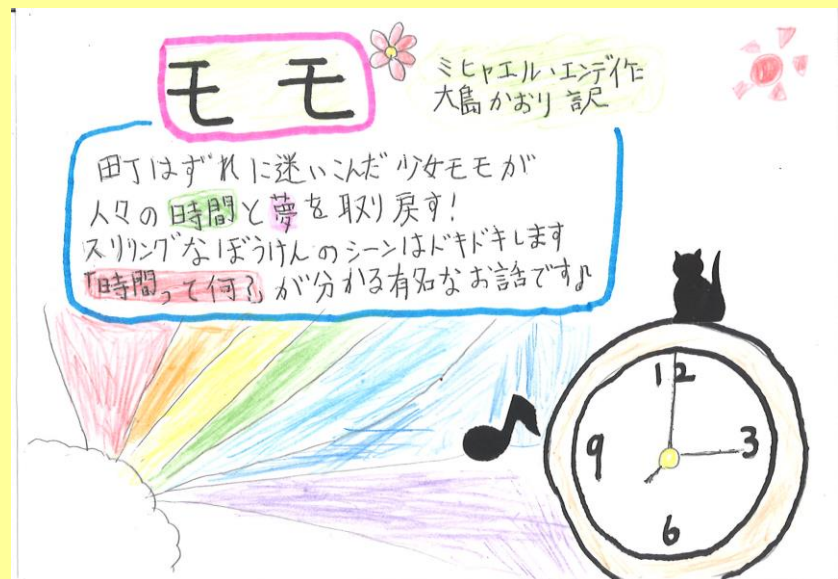 モモ
ミヒャエル・エンデ作
大島かおり 訳
町はずれに迷いこんだ少女モモが
人々の時間と夢を取り戻す!
スリリングなぼうけんのシーンはドキドキします
「時間って何?」が分かる有名なお話です♪
12
9
3
6